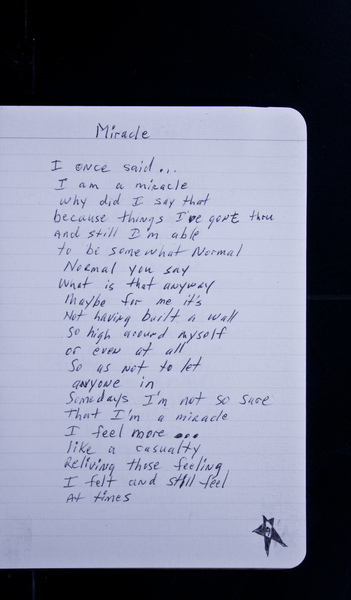 Miracle
I once said...
I am a miracle
why did I say that
because things I've gone thru
And still I'm able
to be somewhat Normal
Normal you say
What is that anyway
Maybe for me it's
Not having built a wall
So high around myself
or even at all
So as not to let
anyone in
Somedays I'm not so sure
That I'm a miracle
I feel more ...
like a casualty
Reliving those feeling
I felt and still feel
At times